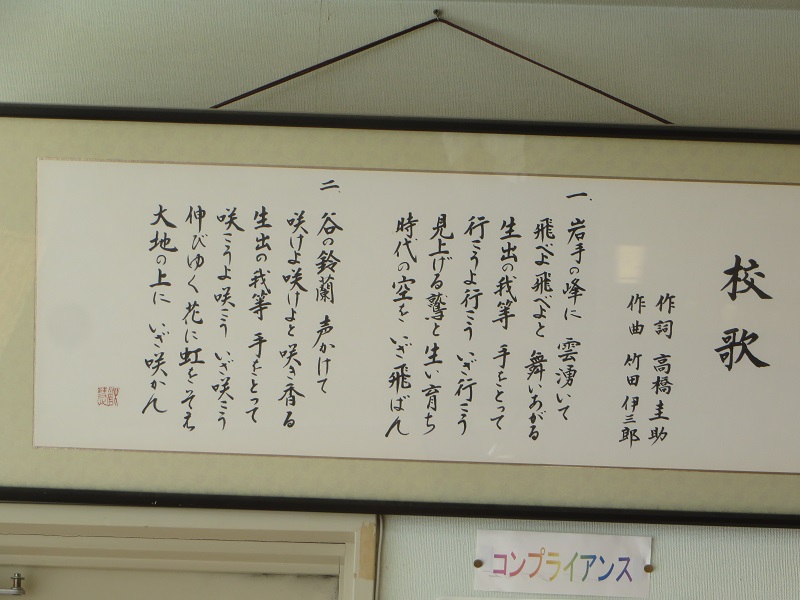 校歌
作詞 高橋圭助
作曲 竹田伊三郎
一、岩手の峰に 雲湧いて
飛べよ飛べよと 舞いあがる
生出の我等 手をとって
行こうよ行こう いざ行こう
見上げる鷲と生い育ち
時代の空を いざ飛ばん
二、谷の鈴蘭 声かけて
咲けよ咲けよと咲き香る
生出の我等 手をとって
咲こうよ咲こう いざ咲こう
伸びゆく花に虹をそえ
大地の上に いざ咲かん
コンプライアンス